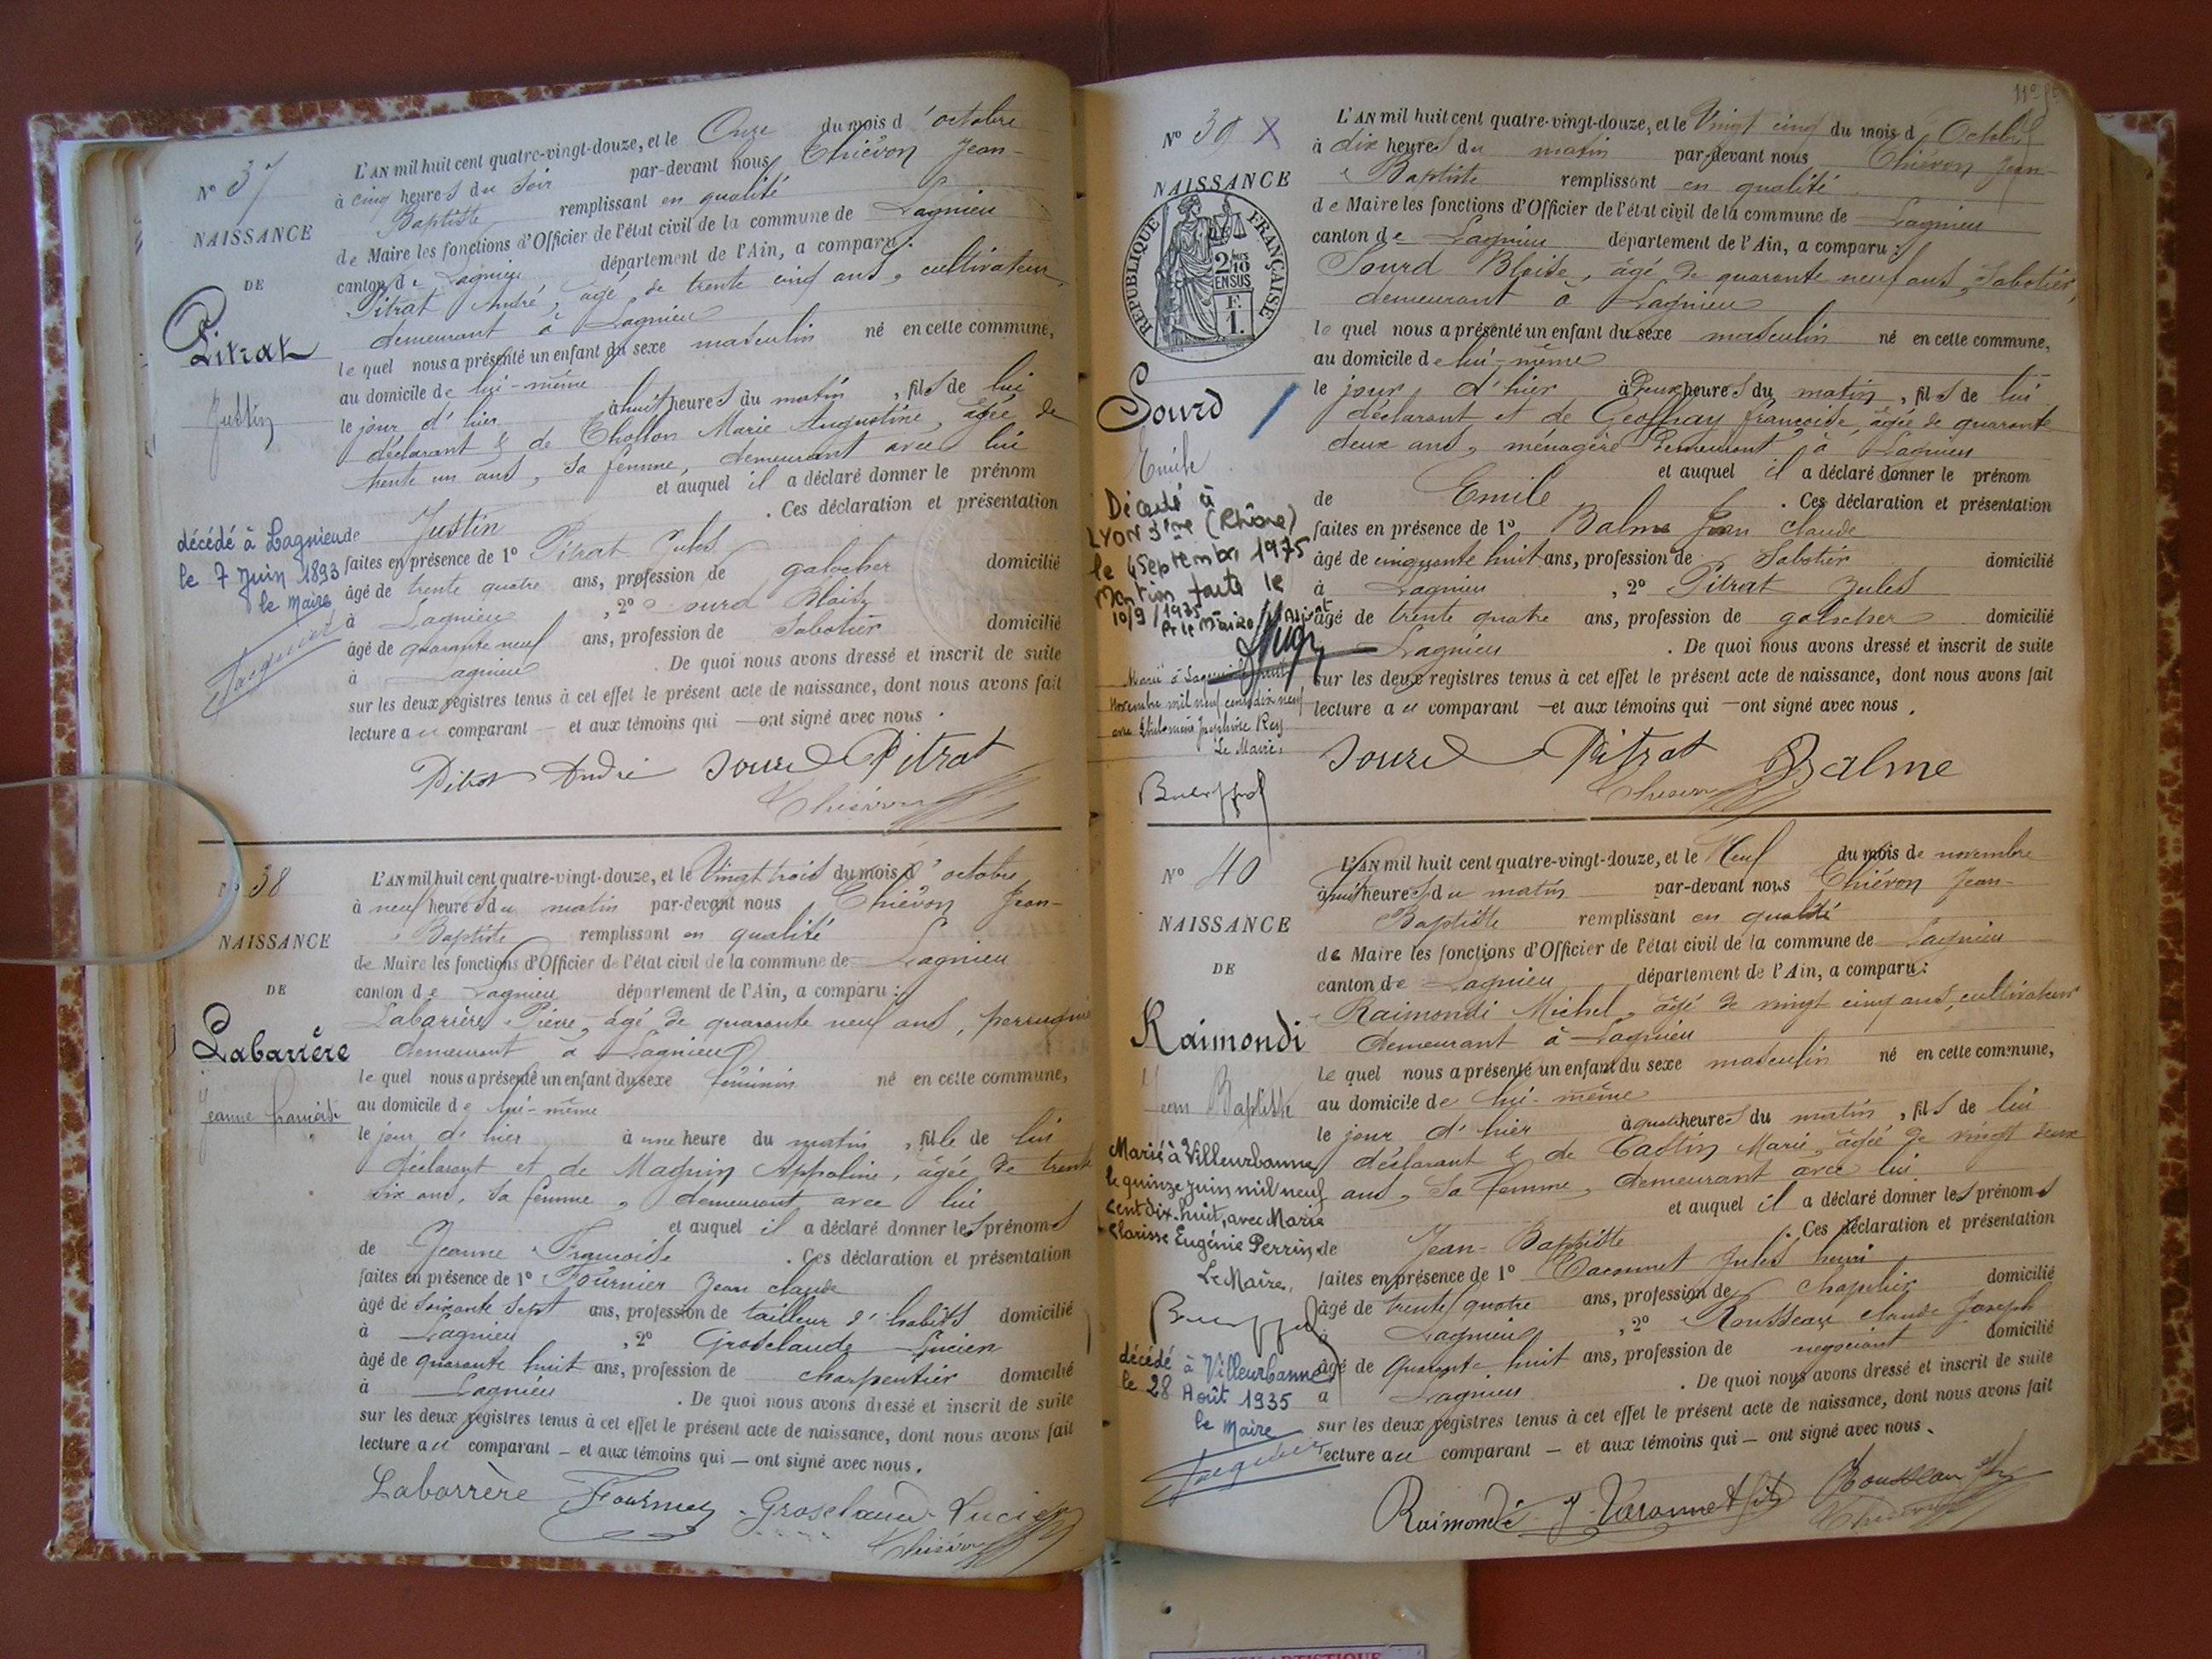 N° 37
NAISSANCE
DE
Pitrat
Justin
décédé à Lagnieu
le 7 Juin 1893
le Maire
L'AN mil huit cent quatre-vingt-douze, et le Onze du mois d'octobre
à cinq heures du soir par-devant nous Thiévon Jean-
Baptiste remplissant en qualité
de Maire les fonctions d'Officier de l'état civil de la commune de Lagnieu
canton de Lagnieu département de l'Ain, a comparu :
Pitrat André, âgé de trente cinq ans, cultivateur,
demeurant à Lagnieu
lequel nous a présenté un enfant du sexe masculin né en cette commune,
au domicile de lui-même
le jour d'hier à huit heures du matin, fils de lui
déclarant & de Chollon Marie Augustine, âgée de
trente un ans, sa femme, demeurant avec lui
et auquel il a déclaré donner le prénom
de Justin . Ces déclaration et présentation
faites en présence de 1° Pitrat Jules
âgé de trente quatre ans, profession de galocher domicilié
à Lagnieu, 2° Sourd Blaise
âgé de quarante neuf ans, profession de Sabotier domicilié
à Lagnieu . De quoi nous avons dressé et inscrit de suite
sur les deux registres tenus à cet effet le présent acte de naissance, dont nous avons fait
lecture au comparant — et aux témoins qui — ont signé avec nous .
Pitrat André Sourd Pitrat
Thiévon
N° 38
NAISSANCE
DE
Labarrère
Jeanne Françoise
L'AN mil huit cent quatre-vingt-douze, et le Vingt trois du mois d'octobre
à neuf heures du matin par-devant nous Thiévon Jean-
Baptiste remplissant en qualité
de Maire les fonctions d'Officier de l'état civil de la commune de Lagnieu
canton de Lagnieu département de l'Ain, a comparu :
Labarrère Pierre, âgé de quarante neuf ans,
demeurant à Lagnieu
lequel nous a présenté un enfant du sexe féminin né en cette commune,
au domicile de lui-même
le jour d'hier à une heure du matin, fille de lui
déclarant et de Magnin Appoline, âgée de trente
six ans, sa femme, demeurant avec lui
et auquel il a déclaré donner les prénoms
de Jeanne Françoise . Ces déclaration et présentation
faites en présence de 1° Fournier Jean claude
âgé de soixante sept ans, profession de tailleur d'habits domicilié
à Lagnieu, 2° Grosclaude Lucien
âgé de quarante huit ans, profession de charpentier domicilié
à Lagnieu . De quoi nous avons dressé et inscrit de suite
sur les deux registres tenus à cet effet le présent acte de naissance, dont nous avons fait
lecture au comparant — et aux témoins qui — ont signé avec nous .
Labarrère Fournier Grosclaude Lucien
Thiévon
N° 39 X
NAISSANCE
RÉPUBLIQUE FRANÇAISE
2/10 EN SUS
1 F.
Sourd
Emile
Décédé à
LYON 3ème (Rhône)
le 4 Septembre 1975
Mention faite le
10/9/1975
Pr le Maire
Marié à Lagnieu le huit
Novembre mil neuf cent dix neuf
avec Philomène Joséphine Rey
Le Maire,
L'AN mil huit cent quatre-vingt-douze, et le Vingt cinq du mois d'Octobre
à dix heures du matin par-devant nous Thiévon Jean-
Baptiste remplissant en qualité
de Maire les fonctions d'Officier de l'état civil de la commune de Lagnieu
canton de Lagnieu département de l'Ain, a comparu :
Sourd Blaise, âgé de quarante neuf ans, Sabotier,
demeurant à Lagnieu
lequel nous a présenté un enfant du sexe masculin né en cette commune,
au domicile de lui-même
le jour d'hier à deux heures du matin, fils de lui
déclarant et de Geoffray françoise, âgée de quarante
deux ans, ménagère demeurant à Lagnieu
et auquel il a déclaré donner le prénom
de Emile . Ces déclaration et présentation
faites en présence de 1° Balme Jean claude
âgé de cinquante huit ans, profession de Sabotier domicilié
à Lagnieu, 2° Pitrat Jules
âgé de trente quatre ans, profession de galocher domicilié
Lagnieu . De quoi nous avons dressé et inscrit de suite
sur les deux registres tenus à cet effet le présent acte de naissance, dont nous avons fait
lecture au comparant — et aux témoins qui — ont signé avec nous .
Sourd Pitrat Balme
Thiévon
N° 40
NAISSANCE
DE
Raimondi
Jean Baptiste
Marié à Villeurbanne
le quinze juin mil neuf
cent dix-huit, avec Marie
Clarisse Eugénie Perrin
Le Maire,
décédé à Villeurbanne
le 28 Août 1935
le Maire
L'AN mil huit cent quatre-vingt-douze, et le Neuf du mois de novembre
à huit heures du matin par-devant nous Thiévon Jean-
Baptiste remplissant en qualité
de Maire les fonctions d'Officier de l'état civil de la commune de Lagnieu
canton de Lagnieu département de l'Ain, a comparu :
Raimondi Michel, âgé de vingt cinq ans, cultivateur
demeurant à Lagnieu
lequel nous a présenté un enfant du sexe masculin né en cette commune,
au domicile de lui-même
le jour d'hier à quatre heures du matin, fils de lui
déclarant & de Castin Marie, âgée de vingt deux
ans, sa femme, demeurant avec lui
et auquel il a déclaré donner les prénoms
de Jean-Baptiste . Ces déclaration et présentation
faites en présence de 1° Jules henri
âgé de trente quatre ans, profession de chapelier domicilié
à Lagnieu, 2° Rousseau claude Joseph
âgé de quarante huit ans, profession de negociant domicilié
à Lagnieu . De quoi nous avons dressé et inscrit de suite
sur les deux registres tenus à cet effet le présent acte de naissance, dont nous avons fait
lecture au comparant — et aux témoins qui — ont signé avec nous .
Raimondi Rousseau
Thiévon